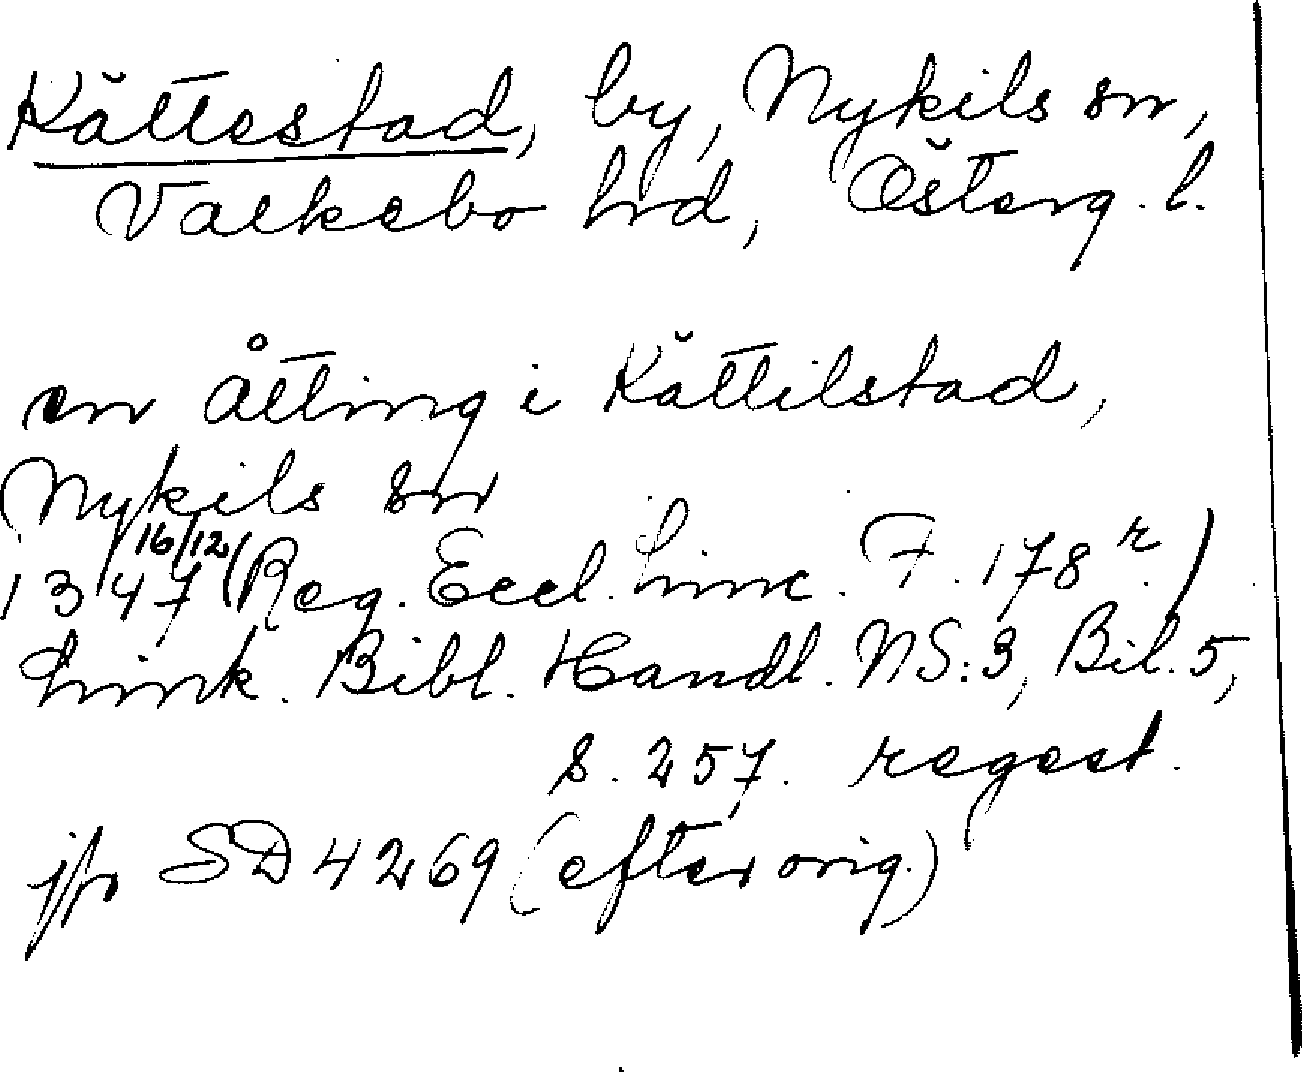 Kättestad, by, Nykils sn,
Valkebo hd, Österg. l.
en åtting i Kättilstad,
Nykils sn
1347 16/12 (Reg. Eccl. Linc. F. 178 r.)
Link. Bibl. Handl. NS:3, Bil. 5,
s. 257. regest.
jfr SD 4269 (efter orig.)